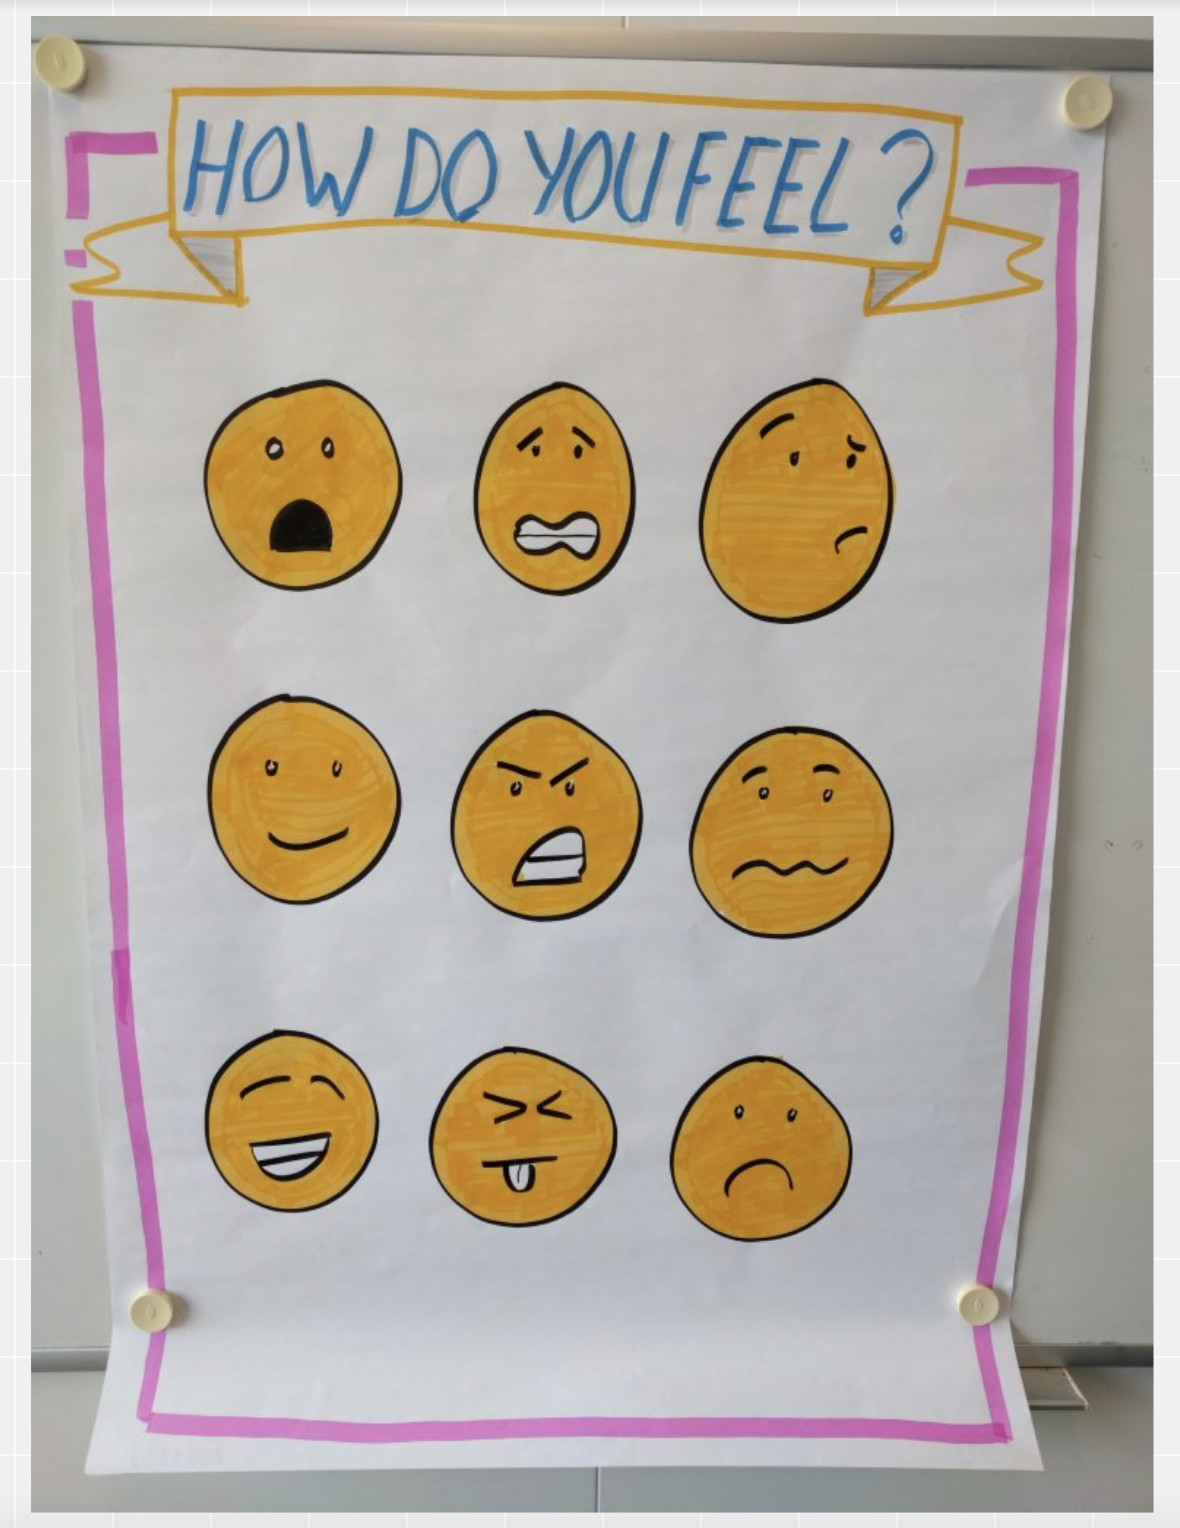 HOW DO YOU FEEL?